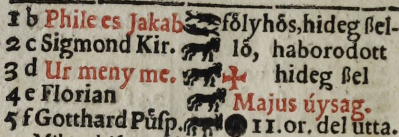 1 b Phile es Jakab fólyhós, hideg ßel-
2 c Sigmond Kir. ló, haborodott
3 d Ur meny me. hideg ßel
4 e Florian Majus úysag.
5 f Gotthard Pú́sp. 11. or. del utta.